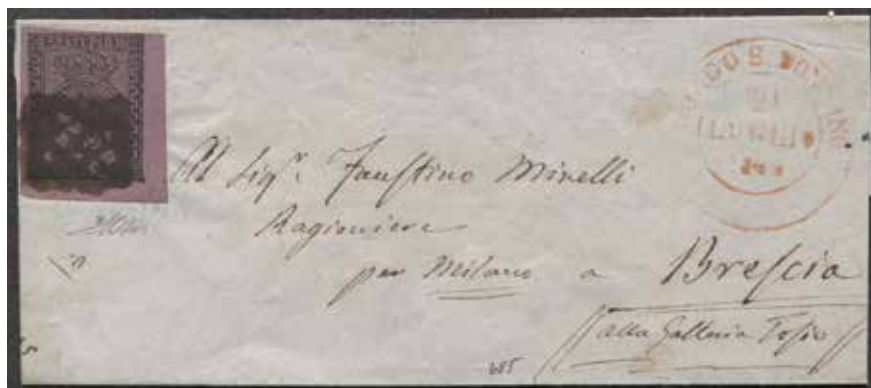 BORGO S. DON
21
LUGLIO
Al Sigr. Faustino Minelli
Ragioniere
per Milano a Brescia
alla Galleria Tosio
685